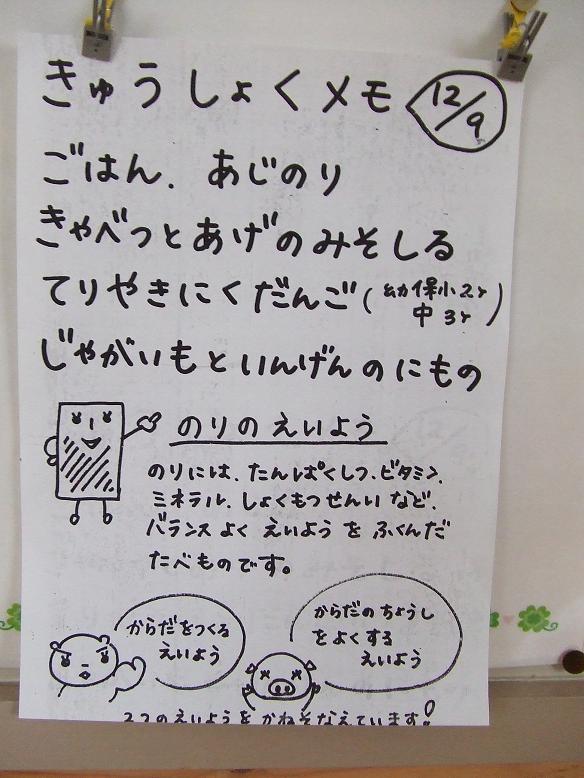 きゅうしょくメモ 12/9
ごはん、あじのり
きゃべつとあげのみそしる
てりやきにくだんご(幼保小2ヶ 中3ヶ)
じゃがいもといんげんのにもの
のりのえいよう
のりには、たんぱくしつ、ビタミン、
ミネラル、しょくもつせんい など、
バランスよく えいようを ふくんだ
たべものです。
からだをつくる
えいよう
からだのちょうし
をよくする
えいよう
2つのえいようをかねそなえています!